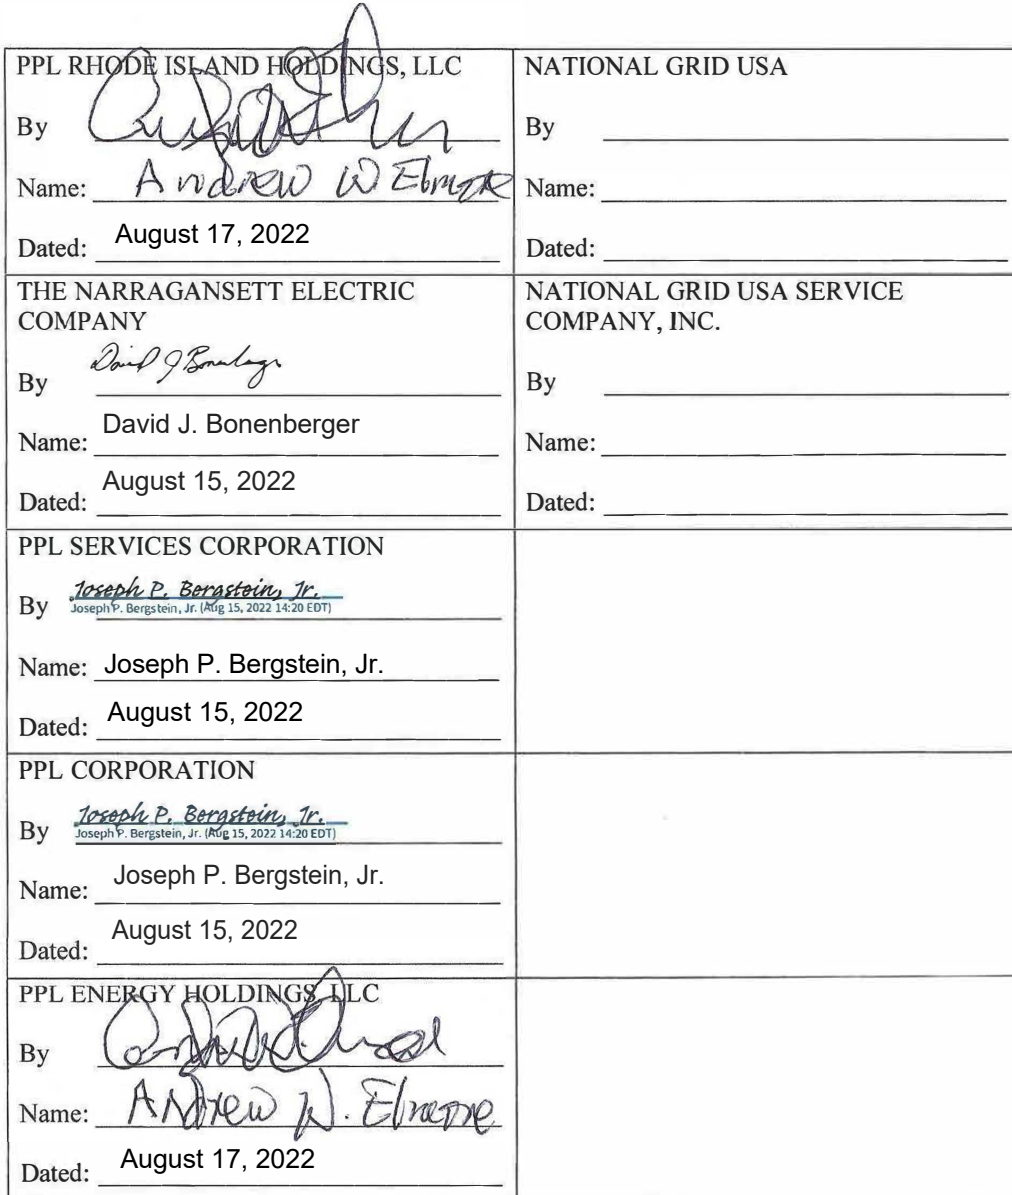 PPL RHODE ISLAND HOLDINGS, LLC
By
Name: Andrew W Elmore
Dated: August 17, 2022
NATIONAL GRID USA
By
Name:
Dated:
THE NARRAGANSETT ELECTRIC
COMPANY
By David J Bonenberger
Name: David J. Bonenberger
Dated: August 15, 2022
NATIONAL GRID USA SERVICE
COMPANY, INC.
By
Name:
Dated:
PPL SERVICES CORPORATION
By Joseph P. Bergstein, Jr.
Joseph P. Bergstein, Jr. (Aug 15, 2022 14:20 EDT)
Name: Joseph P. Bergstein, Jr.
Dated: August 15, 2022
PPL CORPORATION
By Joseph P. Bergstein, Jr.
Joseph P. Bergstein, Jr. (Aug 15, 2022 14:20 EDT)
Name: Joseph P. Bergstein, Jr.
Dated: August 15, 2022
PPL ENERGY HOLDINGS, LLC
By
Name: Andrew W. Elmore
Dated: August 17, 2022